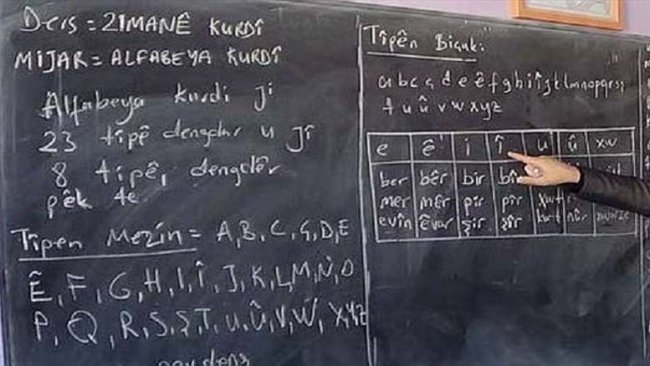 Ders = ZIMANÊ KURDÎ
MIJAR = ALFABEYA KURDÎ
Alfabeya kurdi ji
23 tîpê dengdar u Ji
8 tipê, dengdêr
pêk te
Tîpên Mezin = A, B, C, Ç, D, E
Ê, F, G, H, I, Î, J, K, L, M, N, O
P, Q, R, S, Ş, T, U, Û, V, W, X, Y, Z
Tîpên Biçuk:
a b c ç d e ê f g h i î j k l m n o p q r s ş
t u û v w x y z
e ê i î u û xw
ber bêr bir bîr
mer mêr pir pîr
evîn êvar şir şîr kurt nûr